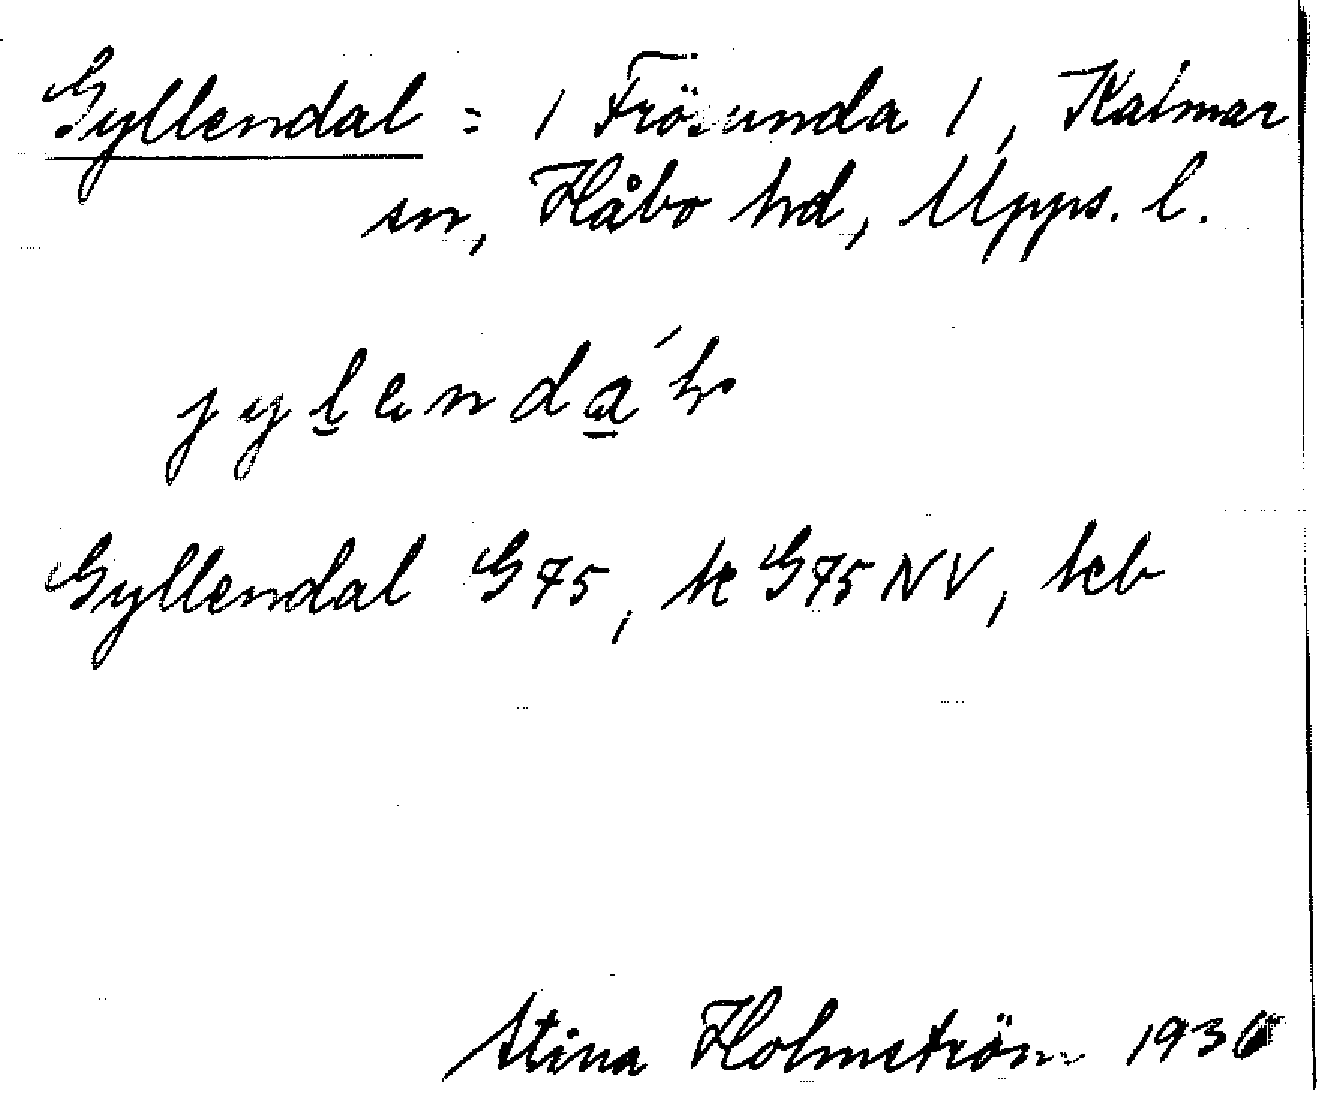 Gyllendal = / Frösunda /, Kalmar
sn, Håbo hd, Upps. l.
Gyllendal G 75, k G 75 NV, kcb
Stina Holmström 1936